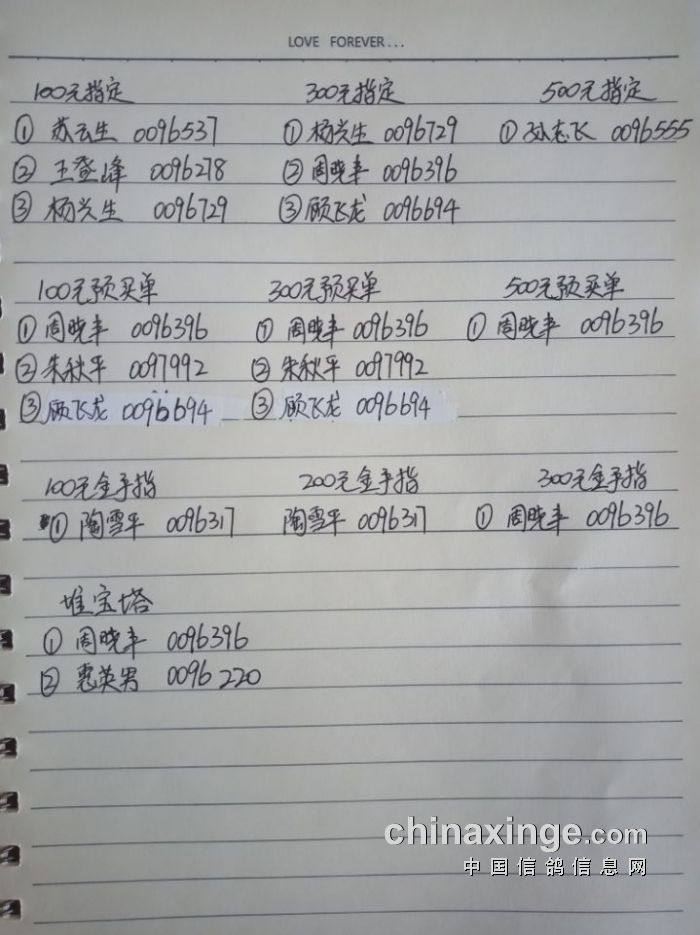 LOVE FOREVER...
100元指定 300元指定 500元指定
① 苏云生 0096537 ① 杨兴生 0096729 ① 孙志飞 0096555
② 王登峰 0096278 ② 周晓丰 0096396
③ 杨兴生 0096729 ③ 顾飞龙 0096694
100元预买单 300元预买单 500元预买单
① 周晓丰 0096396 ① 周晓丰 0096396 ① 周晓丰 0096396
② 朱秋平 0097992 ② 朱秋平 0097992
③ 顾飞龙 0096694 ③ 顾飞龙 0096694
100元金手指 200元金手指 300元金手指
① 陶雪平 0096317 陶雪平 0096317 ① 周晓丰 0096396
堆宝塔
① 周晓丰 0096396
② 惠英男 0096220
chinaxinge.com
中国信鸽信息网